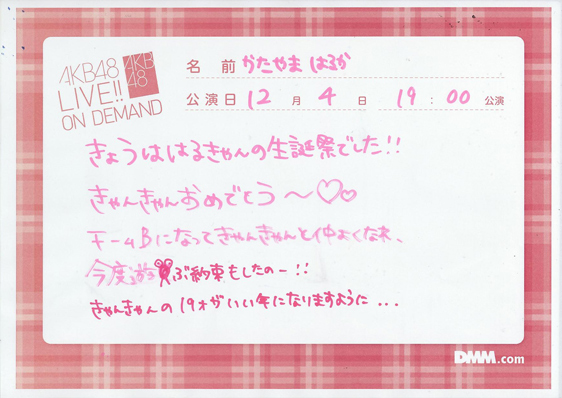 AKB48
LIVE!!
ON DEMAND
AKB
48
名前 かたやま はるか
公演日 12月4日 19:00公演
きょうははるきゃんの生誕祭でした!!
きゃんきゃんおめでとう〜♡♡
チームBになってきゃんきゃんと仲よくなれ、
今度遊ぶ約束もしたのー!!
きゃんきゃんの19才がいい年になりますように...
DMM.com